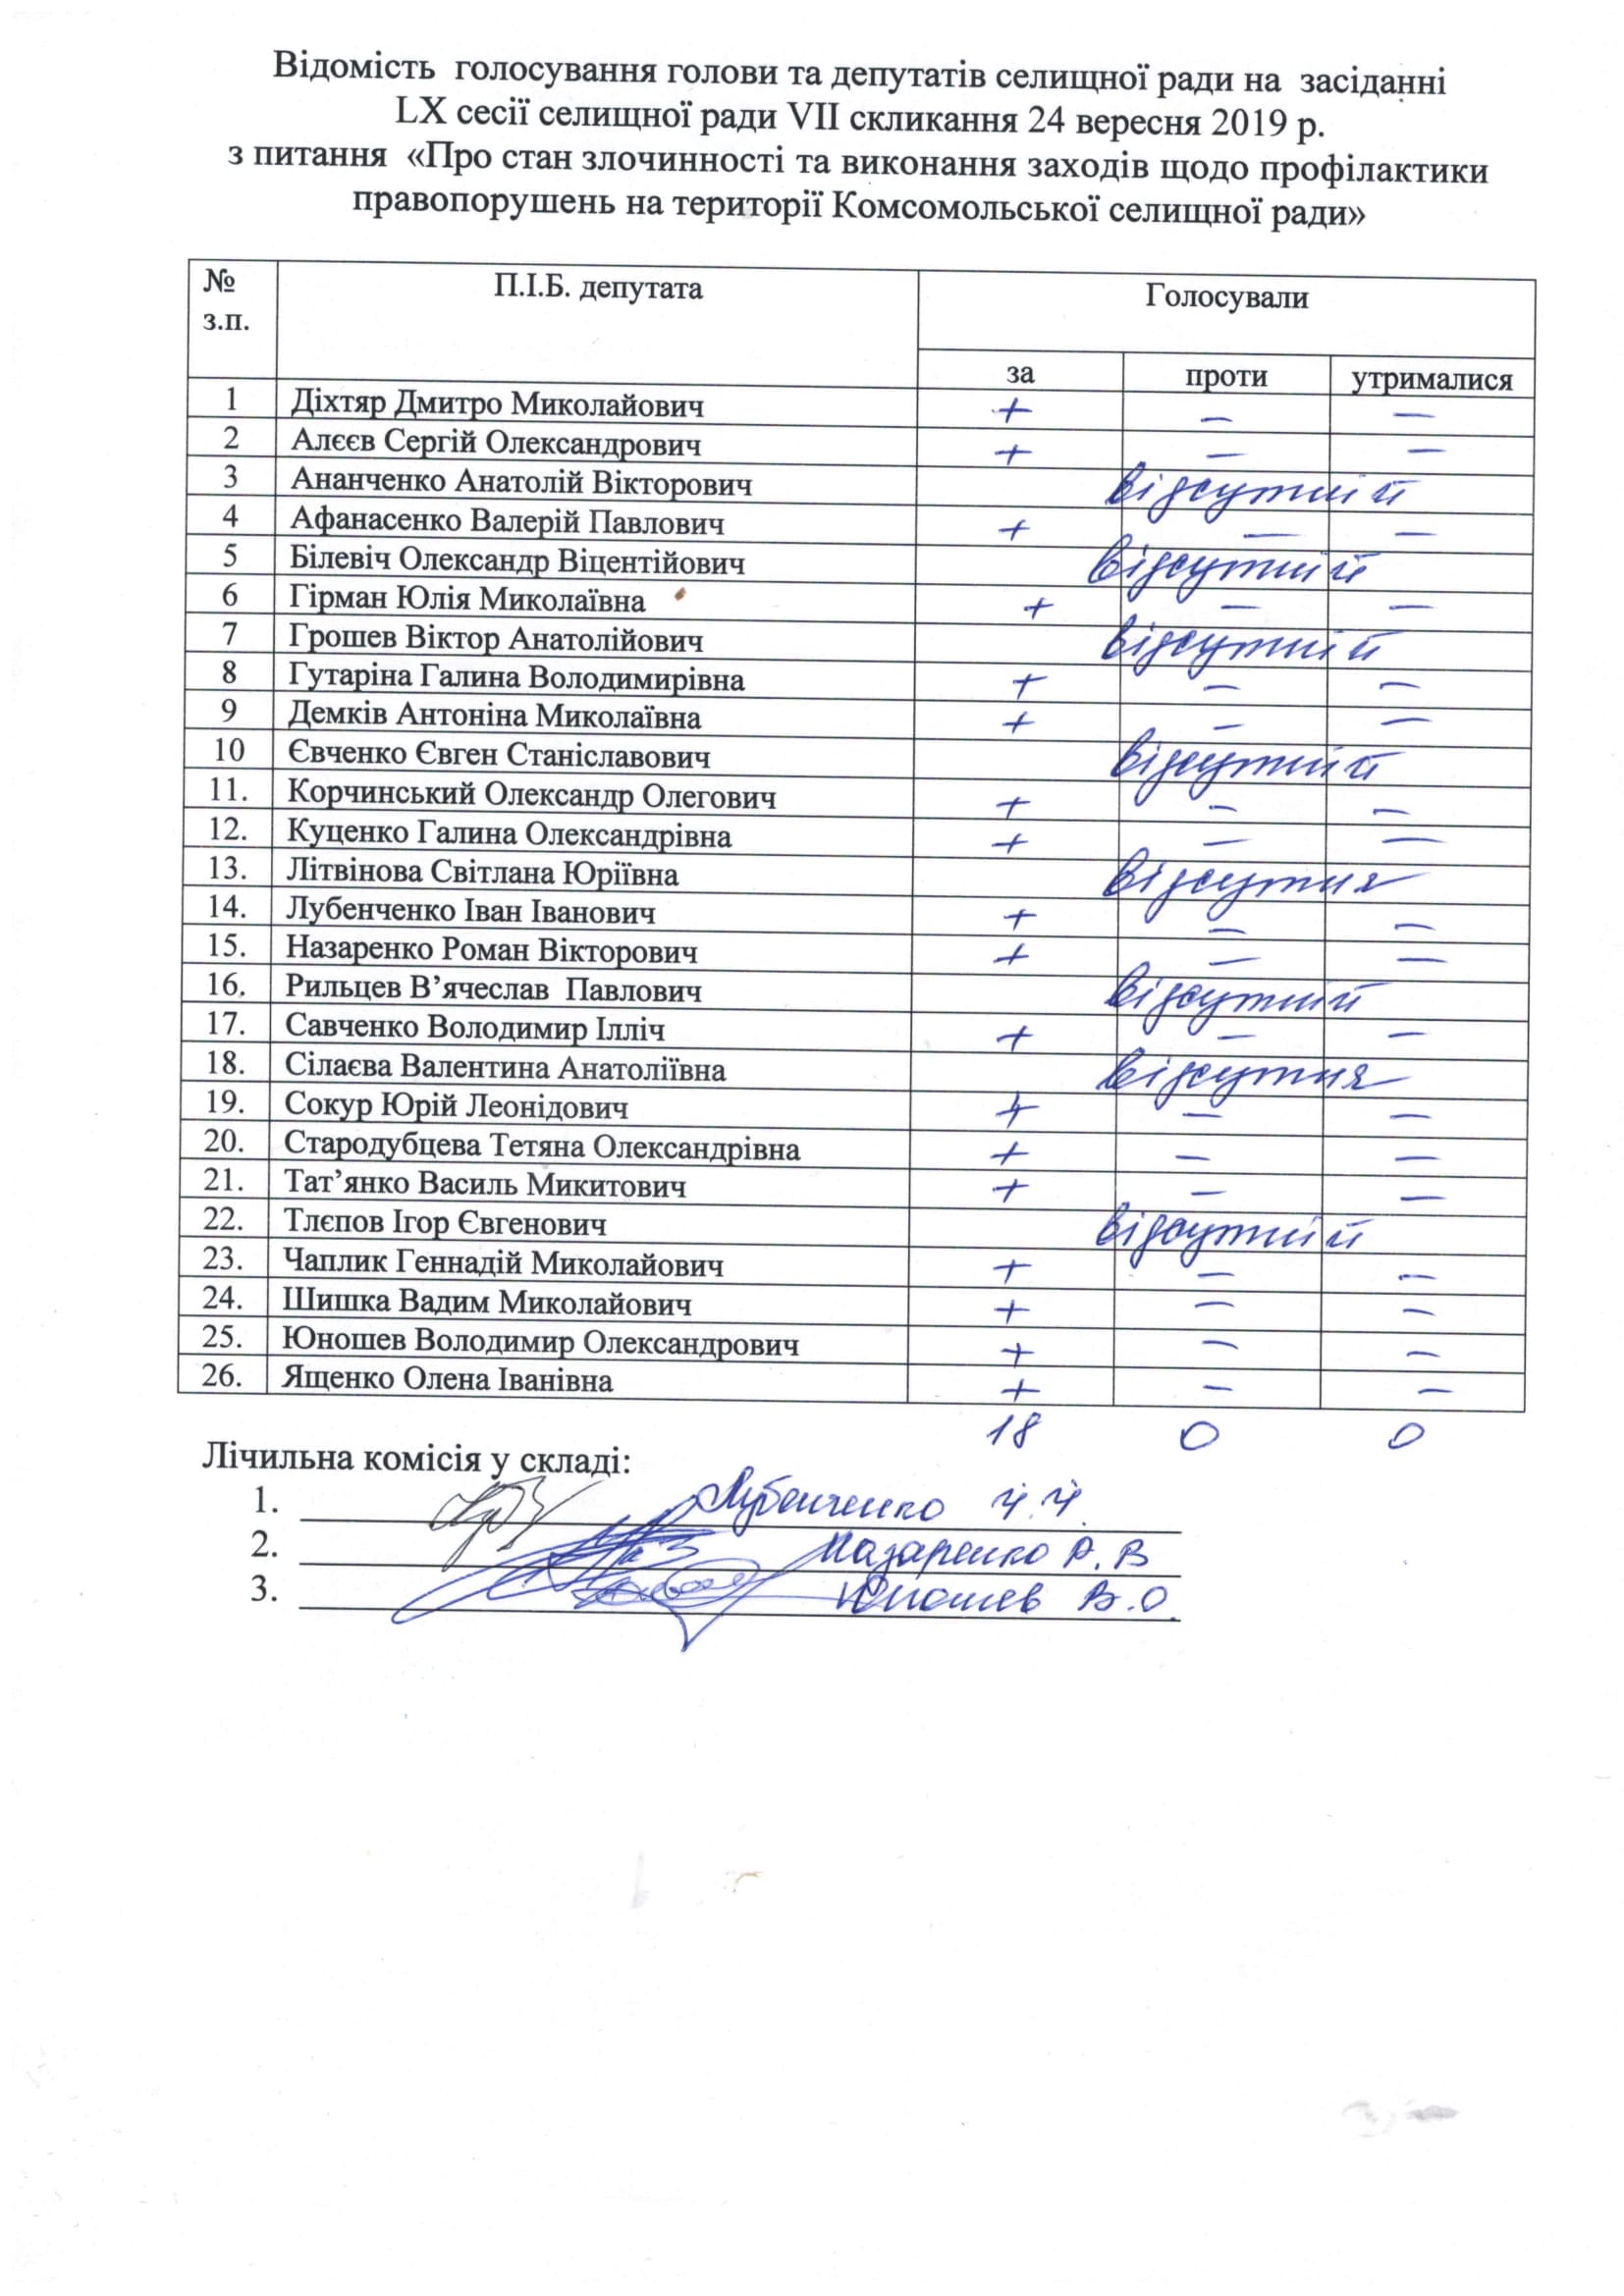 Відомість голосування голови та депутатів селищної ради на засіданні
LX сесії селищної ради VII скликання 24 вересня 2019 р.
з питання «Про стан злочинності та виконання заходів щодо профілактики
правопорушень на території Комсомольської селищної ради»
№ з.п. П.І.Б. депутата Голосували
за проти утрималися
1 Діхтяр Дмитро Миколайович + – –
2 Алєєв Сергій Олександрович + – –
3 Ананченко Анатолій Вікторович відсутній
4 Афанасенко Валерій Павлович + – –
5 Білевіч Олександр Віцентійович відсутній
6 Гірман Юлія Миколаївна + – –
7 Грошев Віктор Анатолійович відсутній
8 Гутаріна Галина Володимирівна + – –
9 Демків Антоніна Миколаївна + – –
10 Євченко Євген Станіславович відсутній
11. Корчинський Олександр Олегович + – –
12. Куценко Галина Олександрівна + – –
13. Літвінова Світлана Юріївна відсутня
14. Лубенченко Іван Іванович + – –
15. Назаренко Роман Вікторович + – –
16. Рильцев В’ячеслав Павлович відсутній
17. Савченко Володимир Ілліч + – –
18. Сілаєва Валентина Анатоліївна відсутня
19. Сокур Юрій Леонідович + – –
20. Стародубцева Тетяна Олександрівна + – –
21. Тат’янко Василь Микитович + – –
22. Тлєпов Ігор Євгенович відсутній
23. Чаплик Геннадій Миколайович + – –
24. Шишка Вадим Миколайович + – –
25. Юношев Володимир Олександрович + – –
26. Ященко Олена Іванівна + – –
18 0 0
Лічильна комісія у складі:
1. Лубенченко І.І.
2. Назаренко Р.В
3. Юношев В.О.